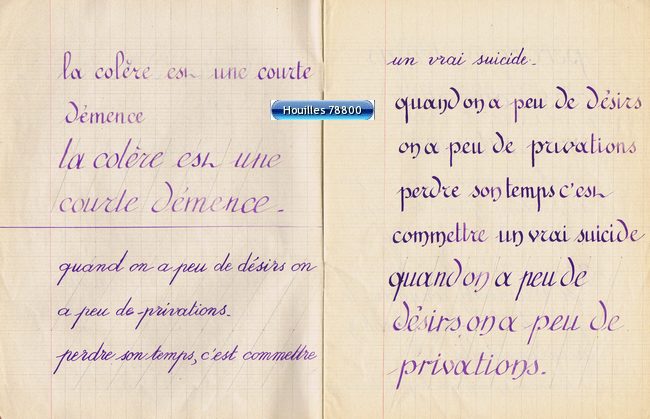 la colère est une courte
démence
la colère est une
courte démence.
quand on a peu de désirs on
a peu de privations.
perdre son temps, c'est commettre
Houilles 78800
un vrai suicide.
quand on a peu de désirs
on a peu de privations
perdre son temps c'est
commettre un vrai suicide
quand on a peu de
désirs on a peu de
privations.